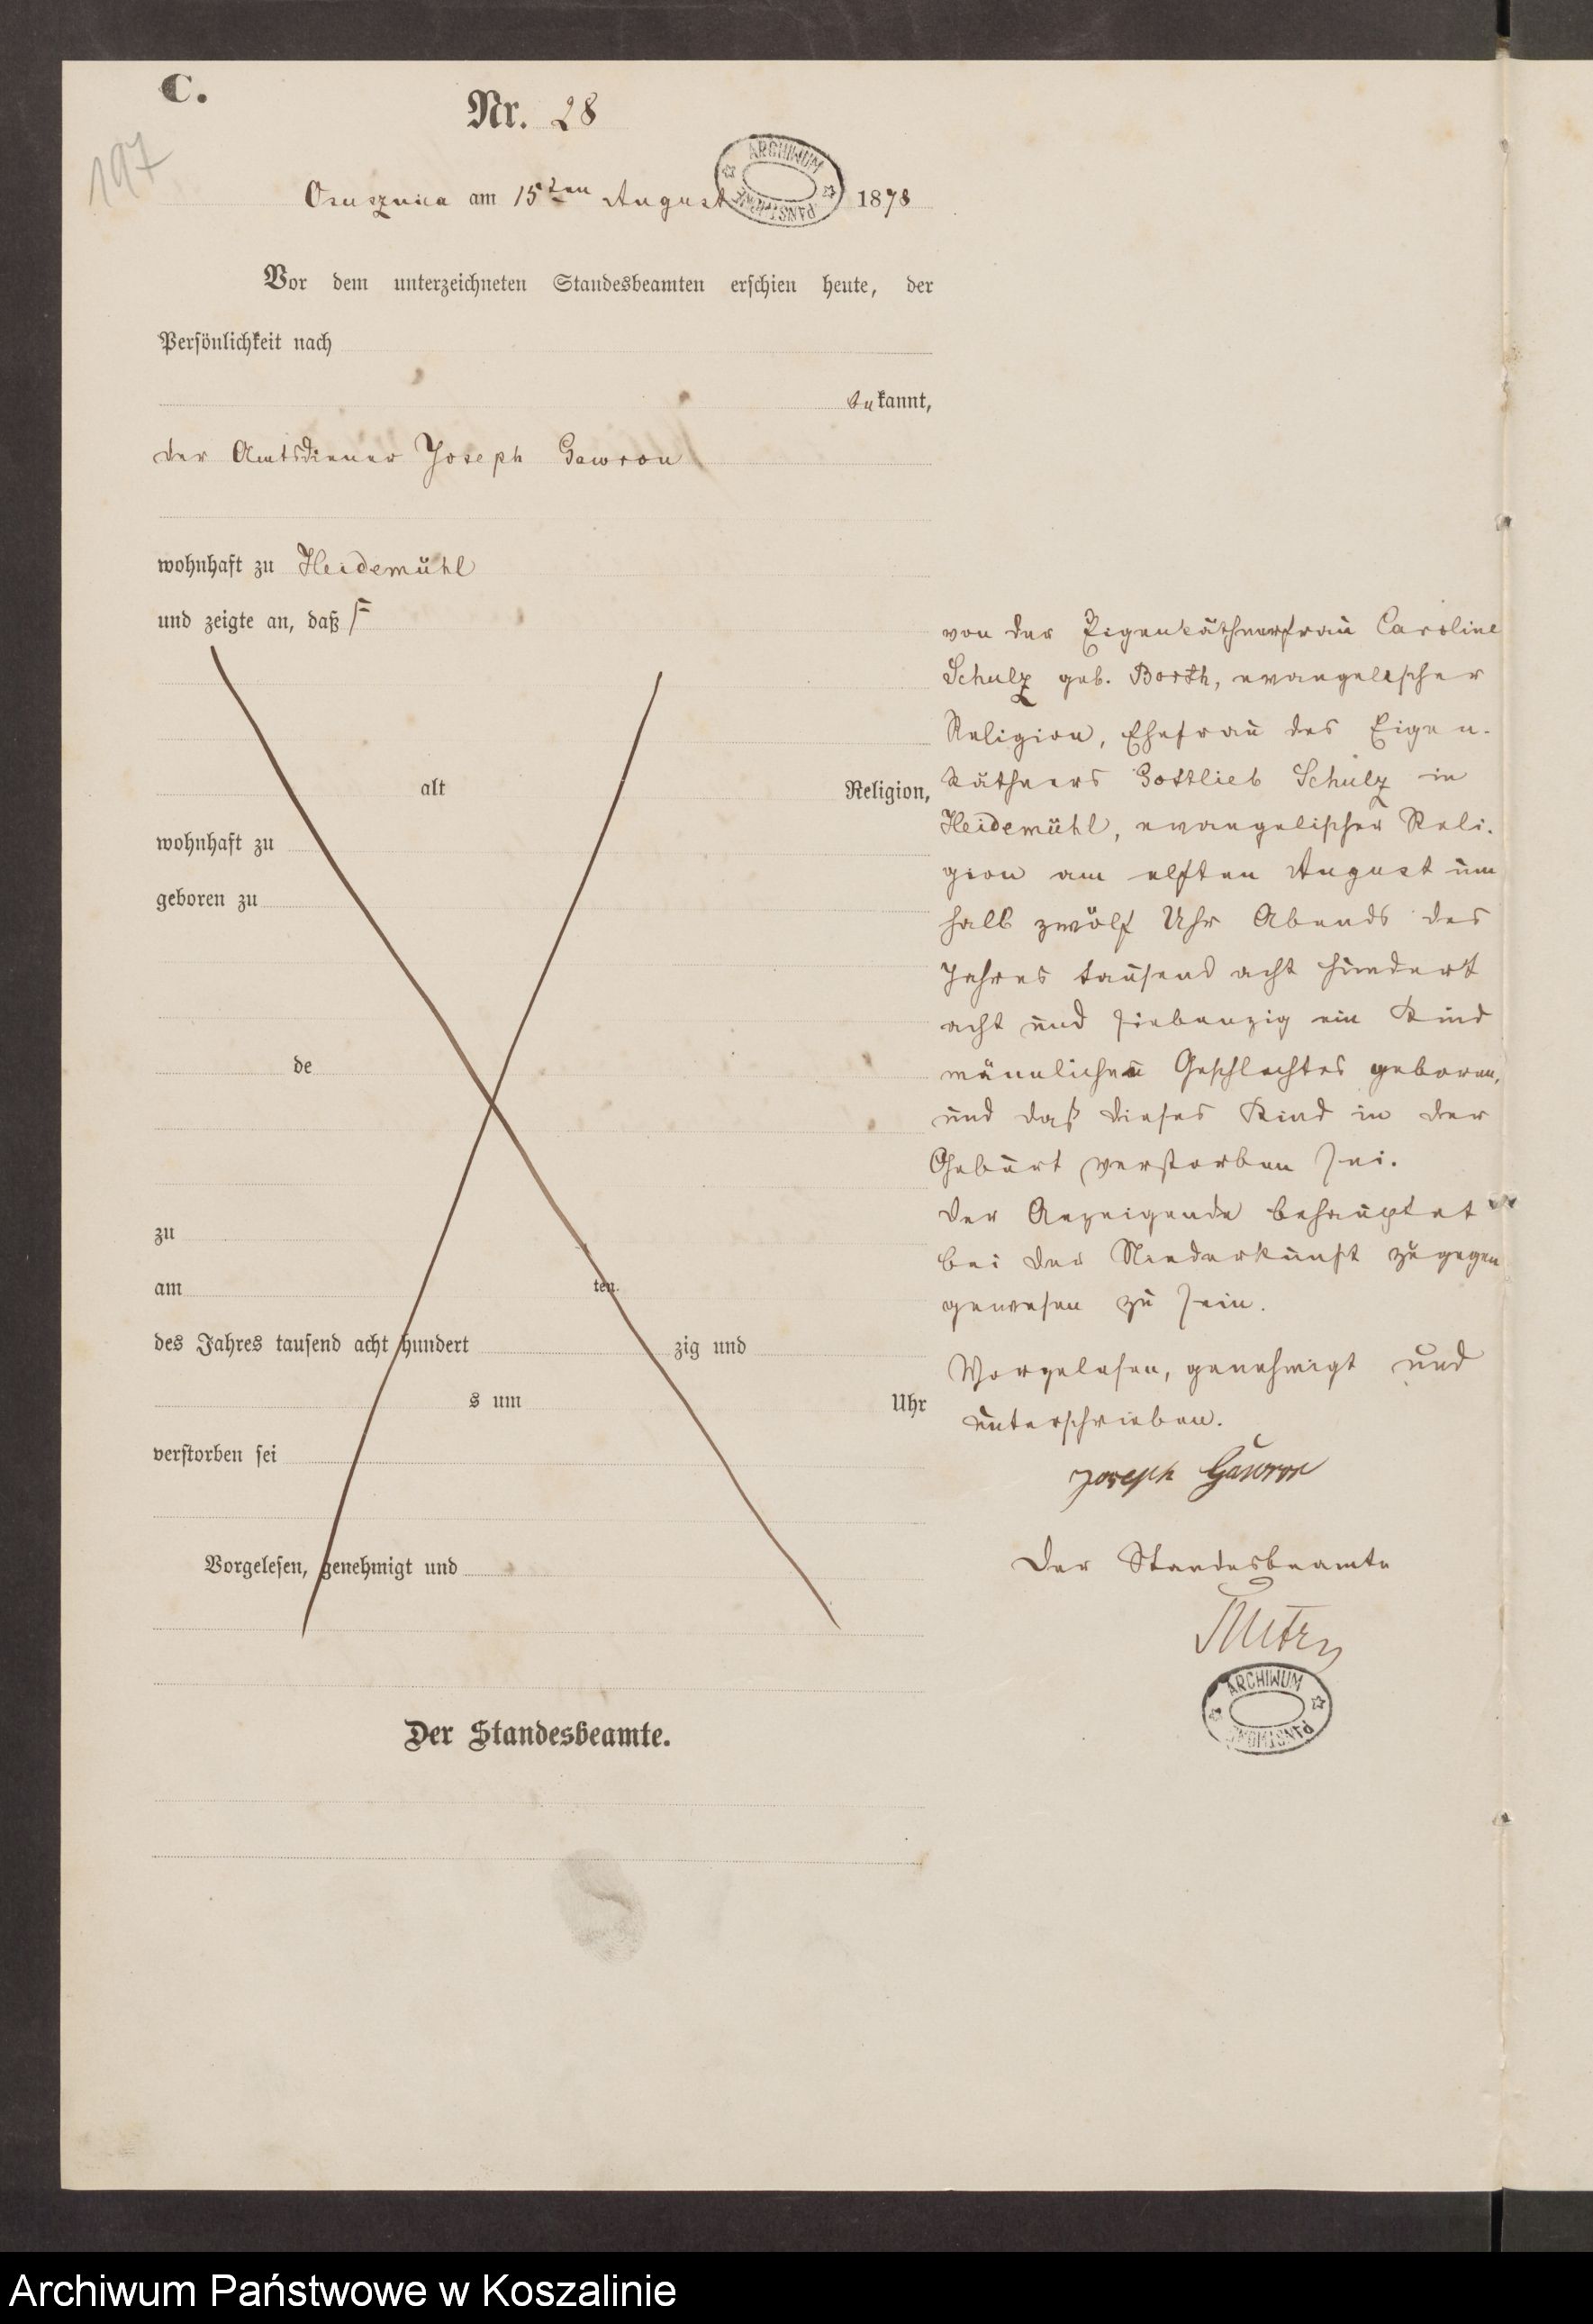 C.
Nr. 28
197
Osusznica am 15ten August 1878
ARCHIWUM PAŃSTWOWE
Vor dem unterzeichneten Standesbeamten erschien heute, der
Persönlichkeit nach
bekannt,
der Amtsdiener Joseph Gawron
wohnhaft zu Heidemühl
und zeigte an, daß
alt Religion,
wohnhaft zu
geboren zu
de
zu
am ten
des Jahres tausend acht hundert zig und
s um Uhr
verstorben sei
Vorgelesen, genehmigt und
Der Standesbeamte.
von der Eigenkäthnerfrau Caroline
Schulz geb. Borth, evangelischer
Religion, Ehefrau des Eigen-
käthners Gottlieb Schulz in
Heidemühl, evangelischer Reli-
gion am elften August um
halb zwölf Uhr Abends des
Jahres tausend acht hundert
acht und siebenzig ein Kind
männlichen Geschlechtes geboren,
und daß dieses Kind in der
Geburt verstorben sei.
Der Anzeigende behauptet
bei der Niederkunft zugegen
gewesen zu sein.
Vorgelesen, genehmigt und
unterschrieben.
Joseph Gawron
Der Standesbeamte
ARCHIWUM PAŃSTWOWE
Archiwum Państwowe w Koszalinie